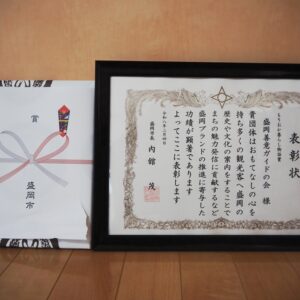 賞
盛岡市
表彰状
もりおか暮らし物語賞
盛岡善意ガイドの会 様
貴団体はおもてなしの心を
持ち多くの観光客へ盛岡の
歴史や文化の案内をすることで
まちの魅力発信に貢献するなど
盛岡ブランドの推進に寄与した
功績が顕著であります
よってここに表彰します
盛岡市長 内舘 茂